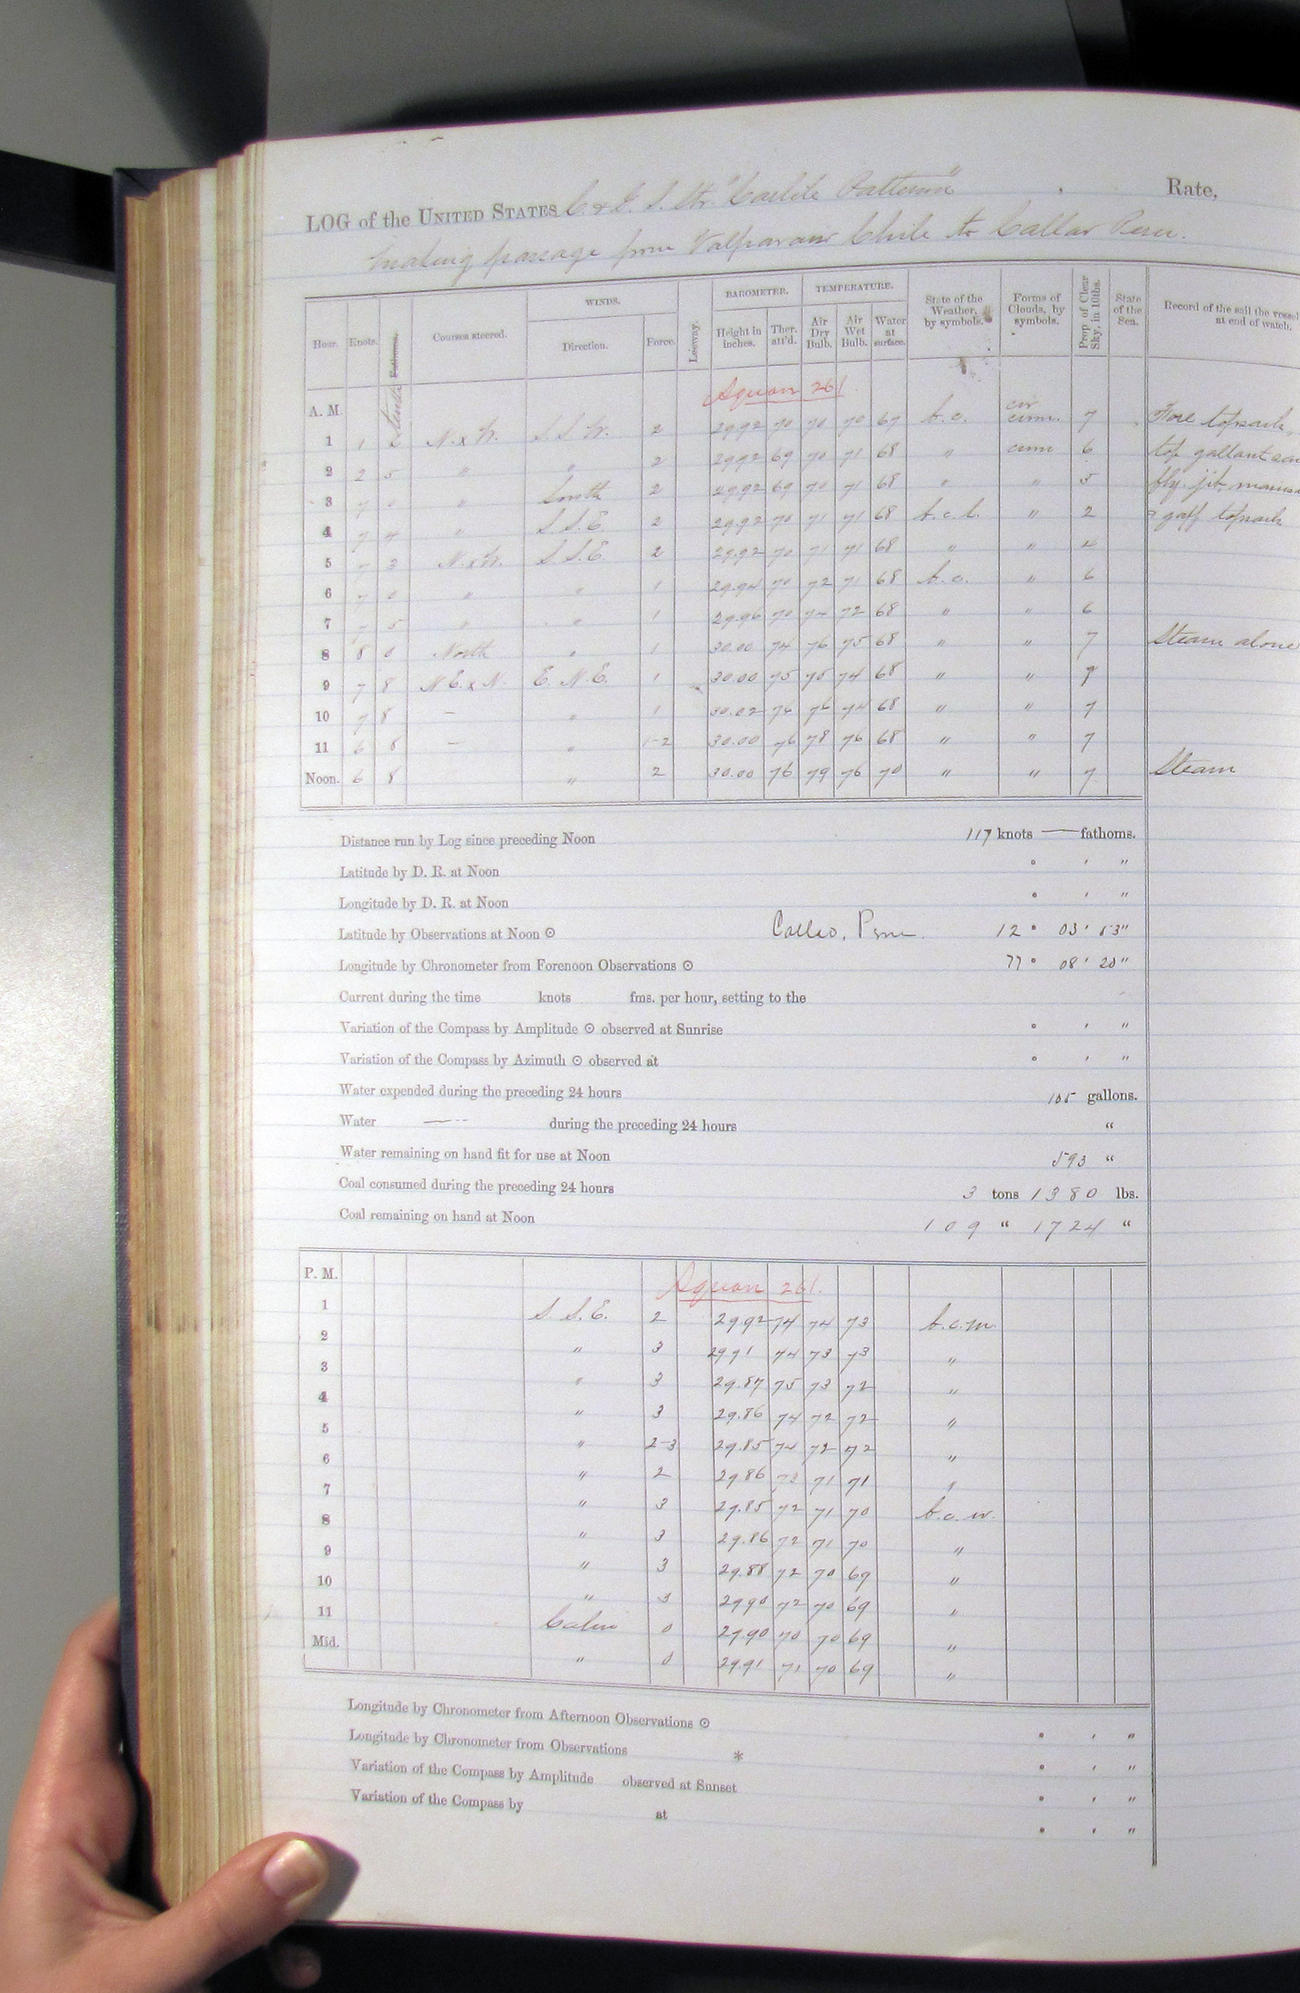 LOG of the UNITED STATES C. & G. S. Str. "Carlile Patterson" Rate,
making passage from Valparaiso Chile to Callao Peru.
Hour. Knots. Fathoms. Tenths Courses steered. WINDS. Direction. Force. Leeway. BAROMETER. Height in inches. Ther. att'd. TEMPERATURE. Air Dry Bulb. Air Wet Bulb. Water at surface. State of the Weather, by symbols. Forms of Clouds, by symbols. Prop. of Clear Sky, in 10ths. State of the Sea. Record of the sail the vessel at end of watch.
A. M. 261
1 1 N. x W. S. S. W. 2 29.92 70 70 70 67 b.c. cir cum. 7 Fore topsails,
2 2 5 " " 2 29.92 69 70 71 68 " cum 6 top gallant
3 7 0 " South 2 29.92 69 70 71 68 " " 5 fly. jib,
4 7 4 " S. S. E. 2 29.92 70 71 71 68 " 2 & gaff topsails
5 7 3 N. x W. S. S. E. 2 29.92 70 71 71 68 " "
6 7 0 " " 1 29.94 70 72 71 68 b.c. " 6
7 7 5 " " 1 29.96 70 74 72 68 " " 6
8 8 0 North " 1 30.00 74 76 75 68 " " 7 Steam alone
9 7 8 N. E. x N. E. N. E. 1 30.00 75 75 74 68 " "
10 7 8 — " 1 30.02 76 76 74 68 " " 7
11 6 8 — " 1-2 30.00 76 78 76 68 " " 7
Noon. 6 8 " 2 30.00 76 79 76 70 " " 7 Steam
Distance run by Log since preceding Noon 117 knots — fathoms.
Latitude by D. R. at Noon ° ' "
Longitude by D. R. at Noon ° ' "
Latitude by Observations at Noon ⊙ Callao, Peru. 12 ° 03 ' 53 "
Longitude by Chronometer from Forenoon Observations ⊙ 77 ° 08 ' 20 "
Current during the time knots fms. per hour, setting to the
Variation of the Compass by Amplitude ⊙ observed at Sunrise ° ' "
Variation of the Compass by Azimuth ⊙ observed at ° ' "
Water expended during the preceding 24 hours 105 gallons.
Water — during the preceding 24 hours "
Water remaining on hand fit for use at Noon 593 "
Coal consumed during the preceding 24 hours 3 tons 1380 lbs.
Coal remaining on hand at Noon 109 " 1724 "
P. M. 261.
1 S. S. E. 2 29.92 74 74 73 b.c.m.
2 " 3 29.91 74 73 73 "
3 " 3 29.87 75 73 72 "
4 " 3 29.86 74 72 72 "
5 " 2-3 29.85 74 72 72 "
6 " 2 29.86 73 71 71 "
7 " 3 29.85 72 71 70 b.c.w.
8 " 3 29.86 72 71 70 "
9 " 3 29.88 72 70 69 "
10 " 3 29.90 72 70 69 "
11 Calm 0 29.90 70 70 69 "
Mid. " 0 29.91 71 70 69 "
Longitude by Chronometer from Afternoon Observations ⊙ ° ' "
Longitude by Chronometer from Observations * ° ' "
Variation of the Compass by Amplitude observed at Sunset ° ' "
Variation of the Compass by at ° ' "